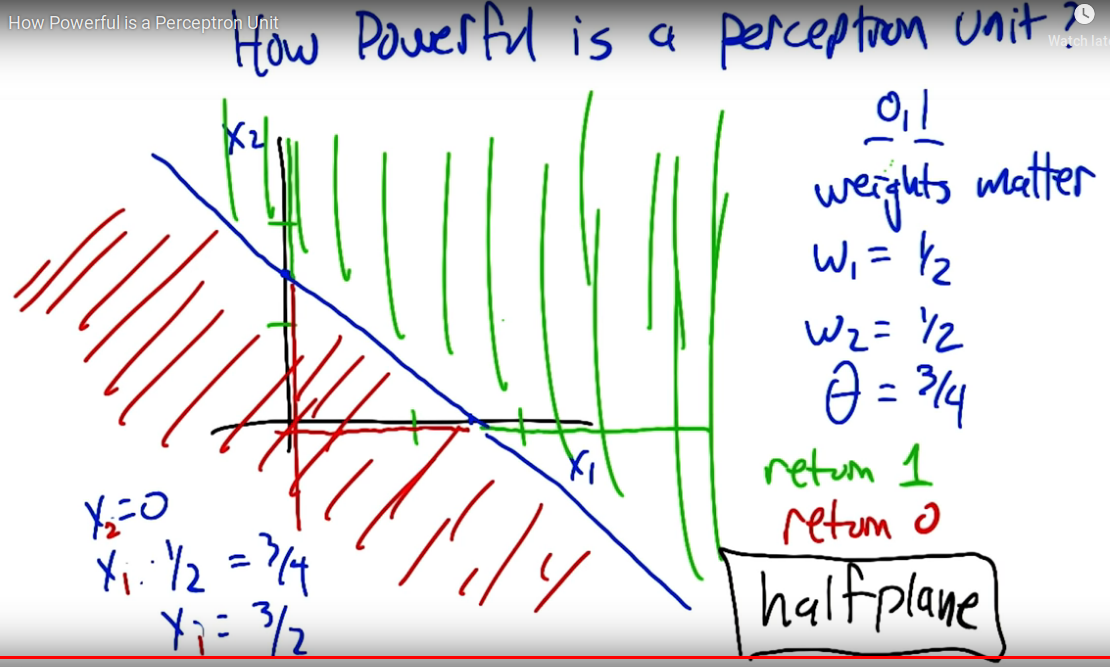 How Powerful is a Perceptron Unit
How Powerful is a perceptron unit?
Watch lat
0,1
weights matter
w₁ = 1/2
w₂ = 1/2
θ = 3/4
return 1
return 0
halfplane
x₂
x₁
x₂=0
x₁ · 1/2 = 3/4
x₁ = 3/2